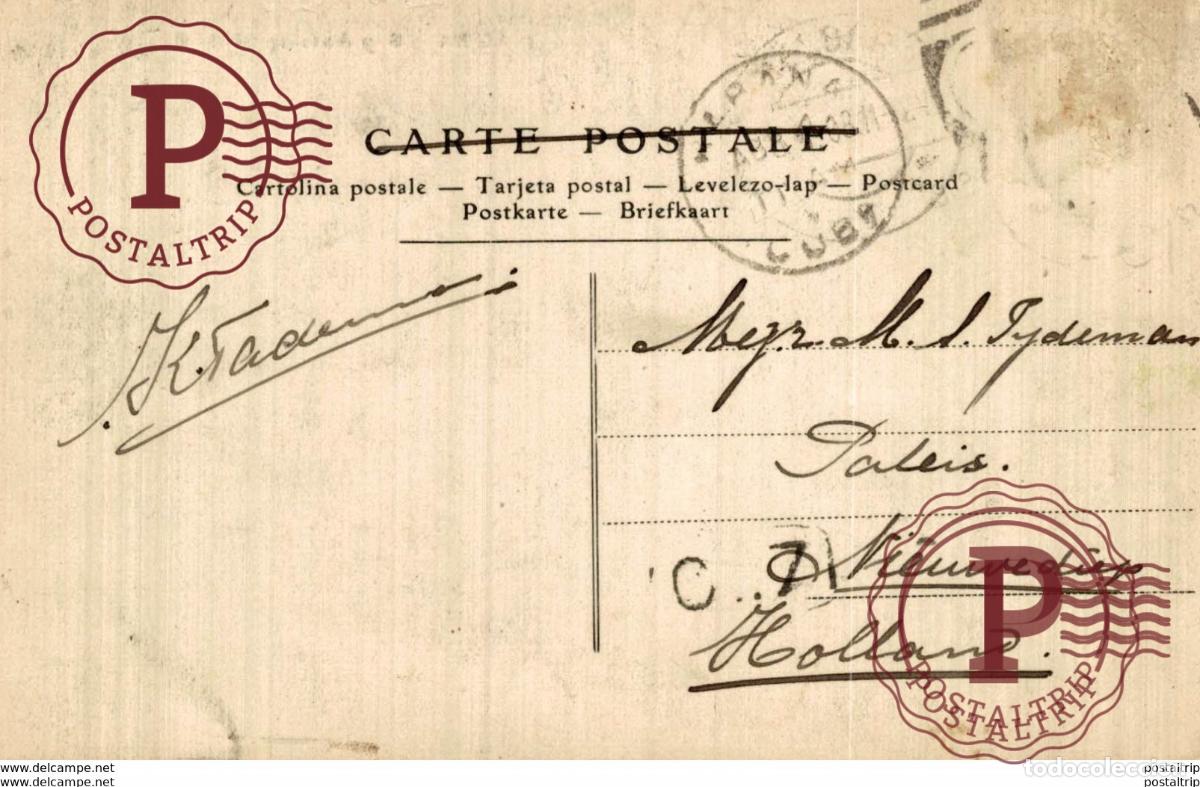 P
POSTALTRIP
CARTE POSTALE
Cartolina postale — Tarjeta postal — Levelezo-lap — Postcard
Postkarte — Briefkaart
CUBA
Mejr. M. S. Tydeman
Paleis.
Nieuwediep
Holland.
C. 7
P
POSTALTRIP
POSTALTRIP
www.delcampe.net
postaltrip
todocoleccion
www.delcampe.net
postaltrip